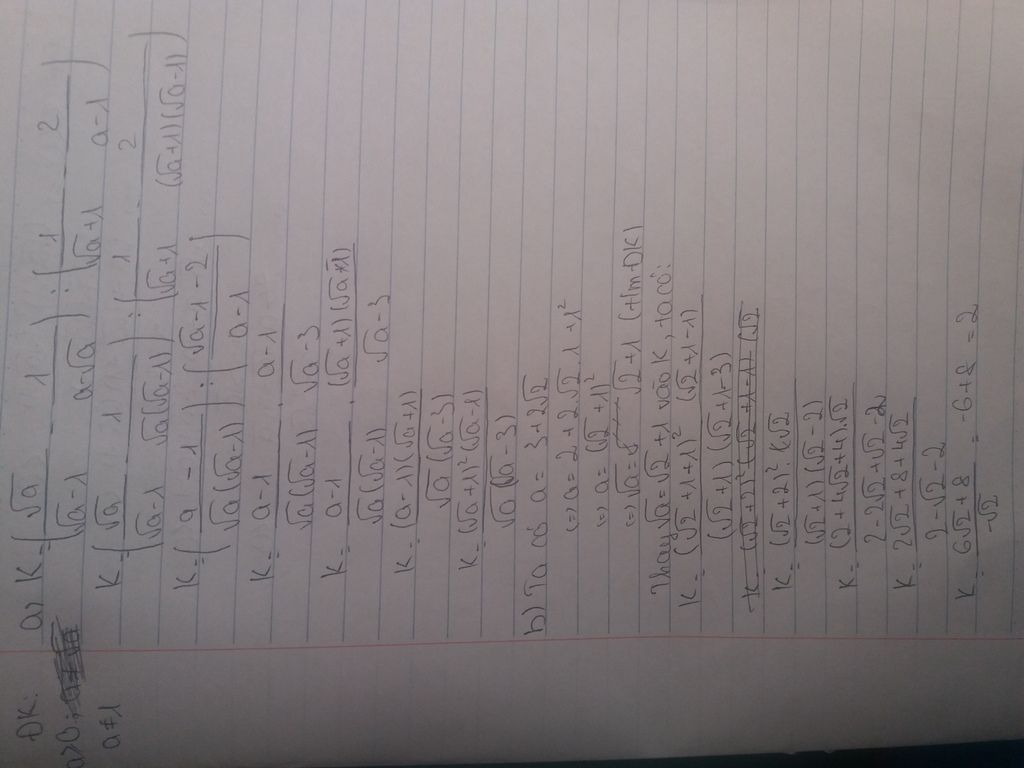 ĐK:
a>0;
a≠1
a, K = (√a/(√a-1) - 1/(a-√a)) : (1/(√a+1) - 2/(a-1))
K = (√a/(√a-1) - 1/(√a(√a-1))) : (1/(√a+1) - 2/((√a+1)(√a-1)))
K = ((a-1)/(√a(√a-1))) : ((√a-1-2)/(a-1))
K = (a-1)/(√a(√a-1)) . (a-1)/(√a-3)
K = (a-1)/(√a(√a-1)) . ((√a+1)(√a-1))/(√a-3)
K = ((a-1)(√a+1))/(√a(√a-3))
K = ((√a+1)²(√a-1))/(√a(√a-3))
b) Ta có a = 3+2√2
(=) a = 2+2.√2.1+1²
(=) a = (√2+1)²
(=) √a = √2+1 (tm ĐK)
Thay √a = √2+1 vào K, ta có:
K = ((√2+1+1)² (√2+1-1))/((√2+1)(√2+1-3))
K = ((√2+2)².√2)/((√2+1)(√2-2))
K = ((2+4√2+4).√2)/(2-2√2+√2-2)
K = (2√2+8+4√2)/(2-√2-2)
K = (6√2+8)/(-√2) = -6+8 = 2